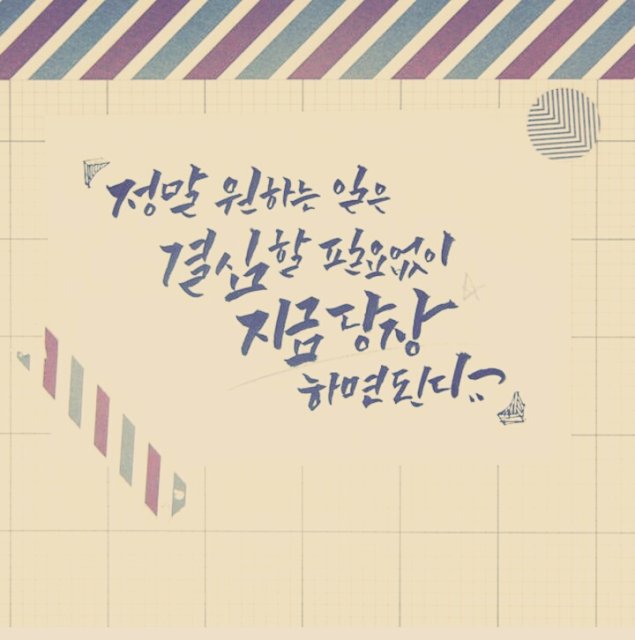 정말 원하는 일은
결심할 필요없이
지금 당장
하면된다..